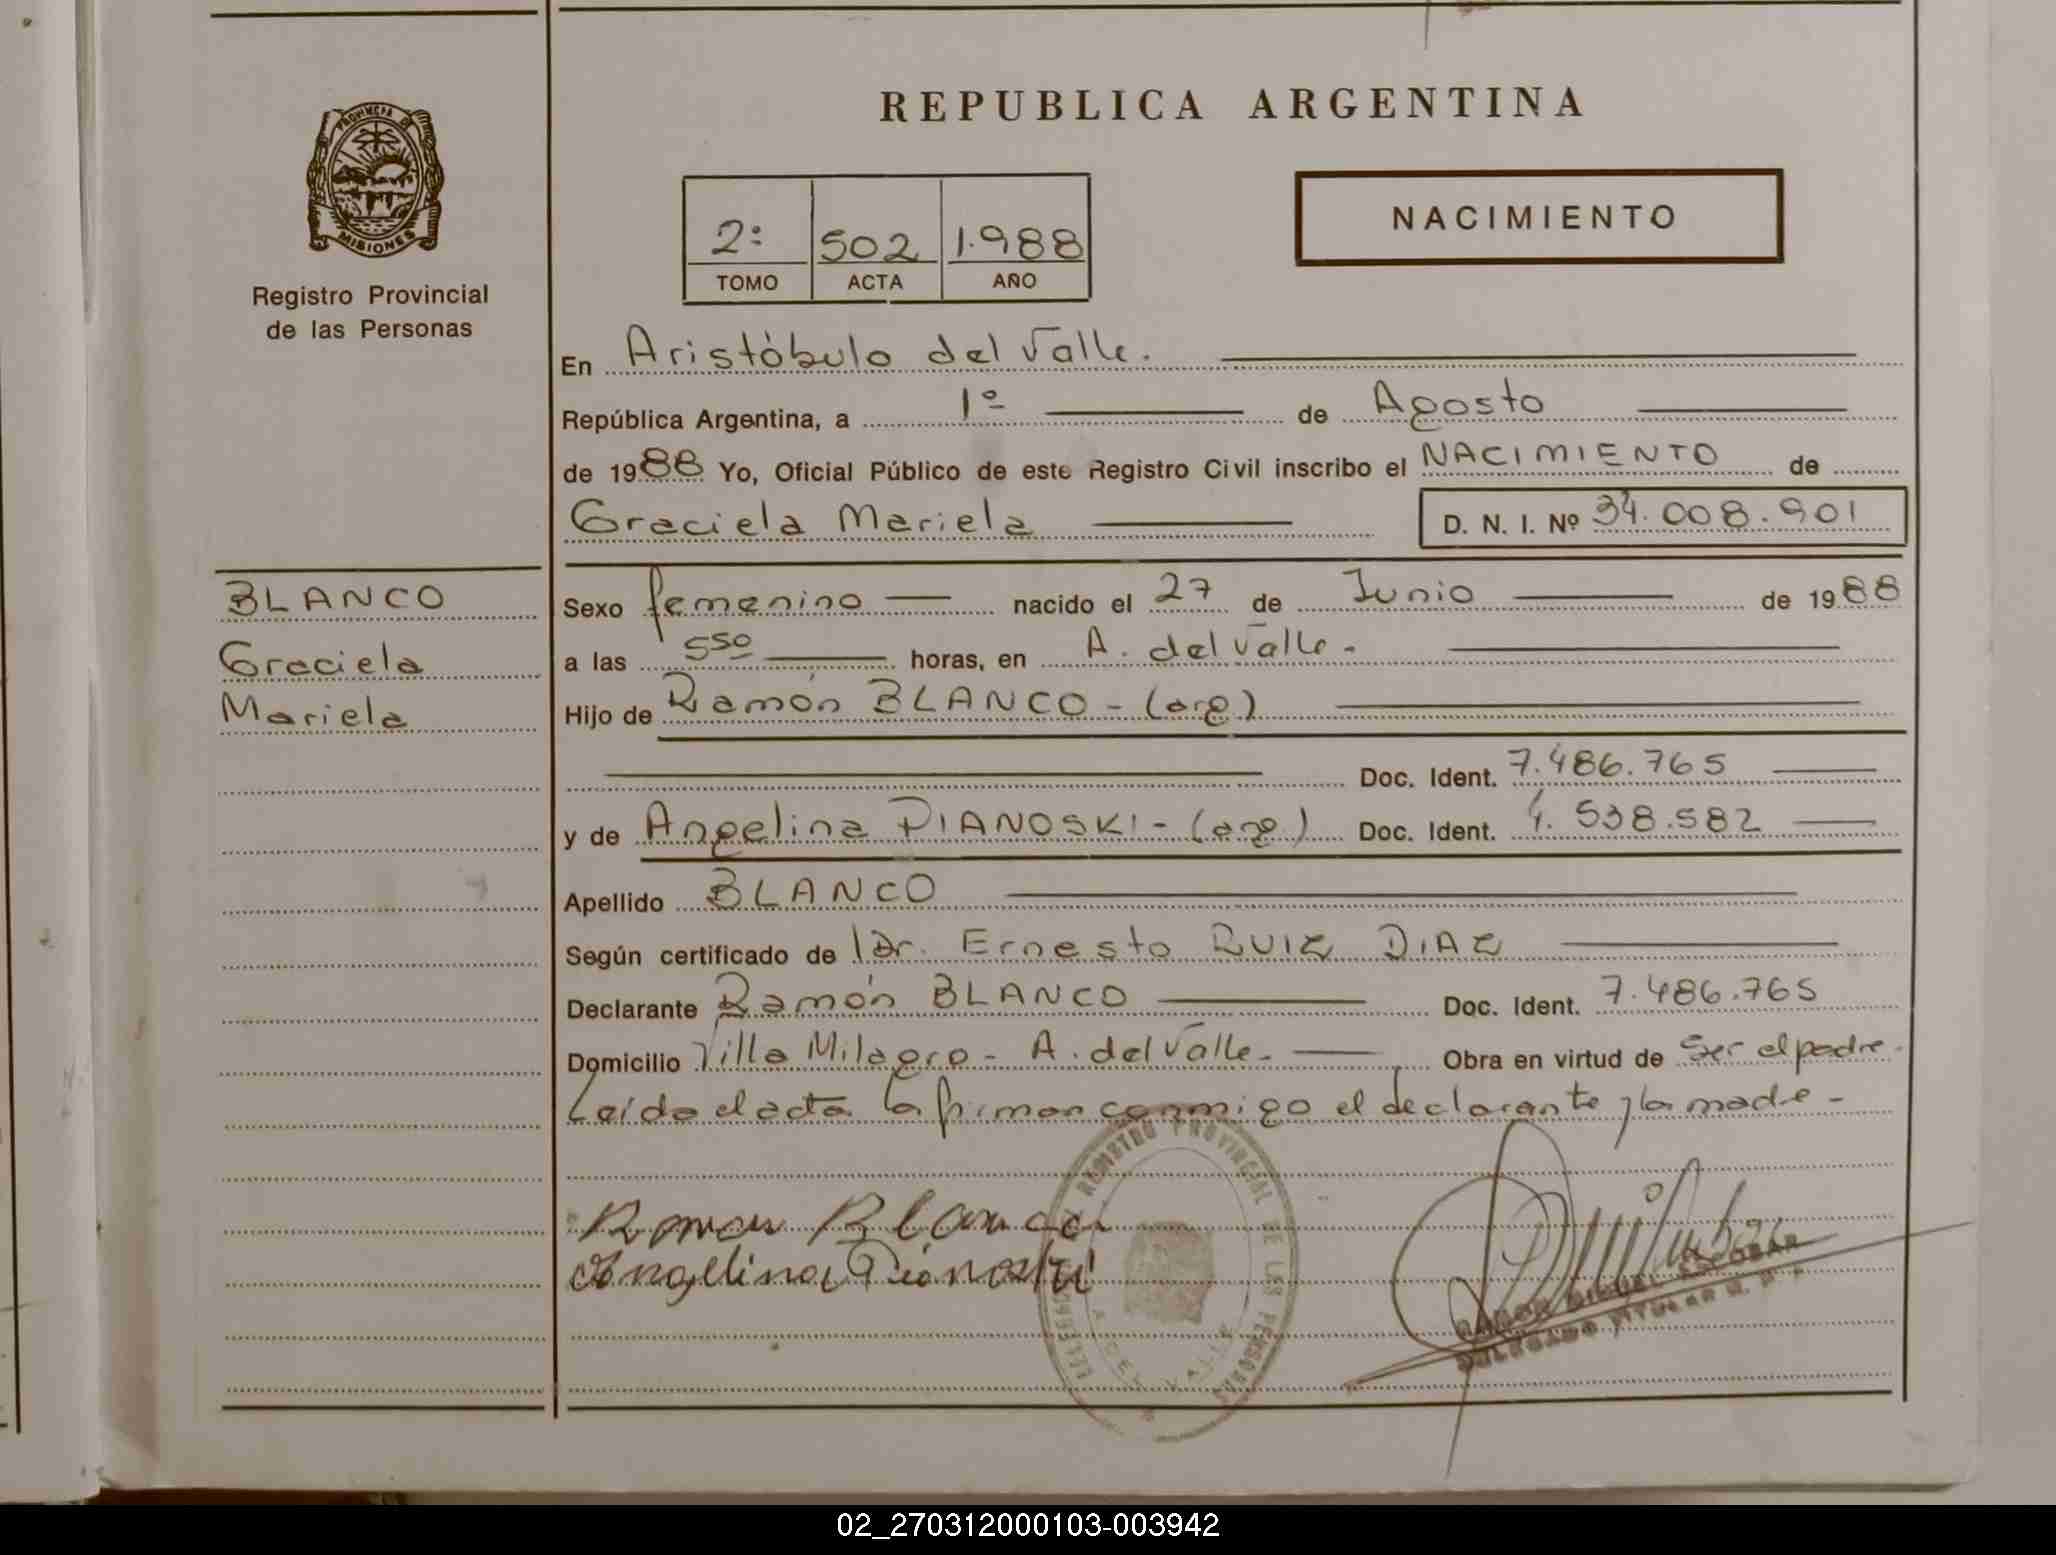 REPUBLICA ARGENTINA
PROVINCIA DE
MISIONES
Registro Provincial
de las Personas
2º 502 1.988
TOMO ACTA AÑO
NACIMIENTO
En Aristóbulo del Valle.
República Argentina, a 1º de Agosto
de 1988 Yo, Oficial Público de este Registro Civil inscribo el NACIMIENTO de
Graciela Mariela D. N. I. Nº 34.008.901
BLANCO
Graciela
Mariela
Sexo femenino nacido el 27 de Junio de 1988
a las 5 50 horas, en A. del Valle.
Hijo de Ramón BLANCO - (arg)
y Doc. Ident. 7.486.765
y de Angelina PIANOSKI - (arg) Doc. Ident. 4.538.582
Apellido BLANCO
Según certificado de Dr. Ernesto RUIZ DIAZ
Declarante Ramón BLANCO Doc. Ident. 7.486.765
Domicilio Villa Milagro - A. del Valle - Obra en virtud de Ser el padre.
Leída el acta la firman conmigo el declarante y la madre -
REGISTRO PROVINCIAL DE LAS PERSONAS
A. DEL VALLE
Ramon Blanco
Angelina Pianoski
RAMON MIGUEL ESCOBAR
DELEGADO TITULAR R. P. P.
02_270312000103-003942